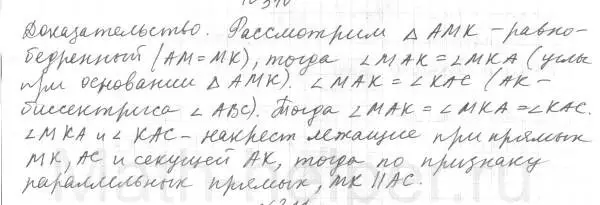 Доказательство. Рассмотрим △ AMK - равно-
бедренный (AM = MK), тогда ∠MAK = ∠MKA (углы
при основании △ AMK). ∠MAK = ∠KAC (AK -
биссектриса ∠ABC). Тогда ∠MAK = ∠MKA = ∠KAC.
∠MKA и ∠KAC - накрест лежащие при прямых
MK, AC и секущей AK, тогда по признаку
параллельных прямых, MK || AC.